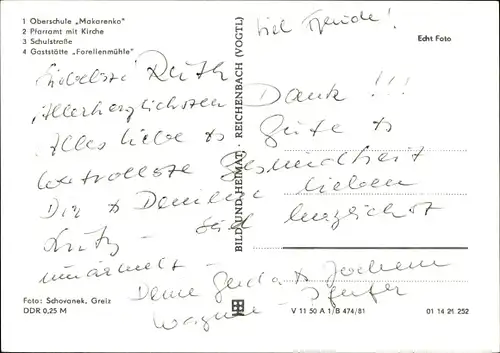 1 Oberschule „Makarenko"
2 Pfarramt mit Kirche
3 Schulstraße
4 Gaststätte „Forellenmühle"
viel Freude!
Echt Foto
Liebste Ruth
Allerherzlichsten Dank!!!
Alles Liebe & Gute &
Gesundheit
Dir & lieben
herzlichst
umarmt -
Deine Gerda & Jochem
Wagner -
BILD UND HEIMAT · REICHENBACH (VOGTL)
Foto: Schovanek, Greiz
DDR 0,25 M
V 11 50 A 1/B 474/81
01 14 21 252